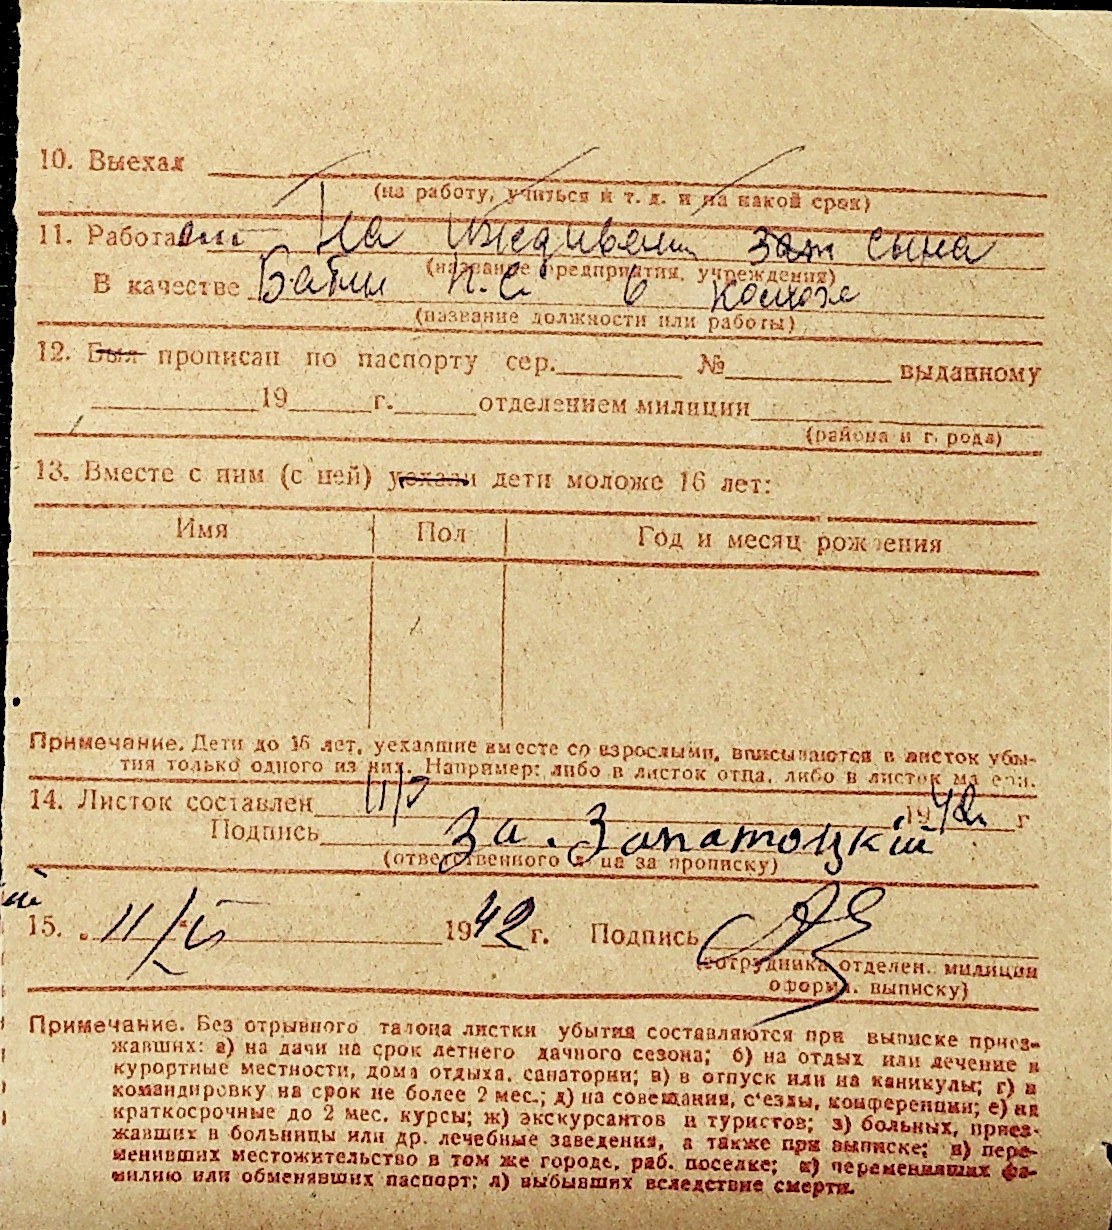 10. Выехал
(на работу, учиться и т. д. и на какой срок)
11. Работа На сына
(название предприятия, учреждения)
В качестве в
(название должности или работы)
12. Был прописан по паспорту сер. № выданному
19 г. отделением милиции
(района и г рода)
13. Вместе с ним (с ней) уехали дети моложе 16 лет:
Имя Пол Год и месяц рождения
Примечание. Дети до 16 лет, уехавшие вместе со взрослыми, вписываются в листок убы-
тия только одного из них. Например: либо в листок отца, либо в листок ма ери.
14. Листок составлен 1942 г
Подпись За.
(ответственного лица за прописку)
15. 11/V 1942 г. Подпись
(сотрудника отделен. милиции
оформ. выписку)
Примечание. Без отрывного талона листки убытия составляются при выписке приез-
жавших: а) на дачи на срок летнего дачного сезона; б) на отдых или лечение в
курортные местности, дома отдыха, санатории; в) в отпуск или на каникулы; г) в
командировку на срок не более 2 мес.; д) на совещания, с'езды, конференции; е) на
краткосрочные до 2 мес. курсы; ж) экскурсантов и туристов; з) больных, приез-
жавших в больницы или др. лечебные заведения, а также при выписке; и) пере-
менивших местожительство в том же городе, раб. поселке; к) переменивших фа-
милию или обменявших паспорт; л) выбывших вследствие смерти.